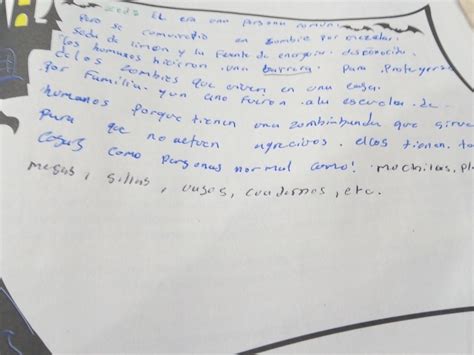 Zed: EL era una persona común.
Pero se convirtió en zombie por mezclar
Soda de limon y la fuente de energia desconocida.
los humanos hicieron una barrera para protegerse
de los zombies que viven en una casa
por familia. y un año fueron ala escuela de
humanos porque tienen una zombibanda que sirve
para que no actuen agrecivos. ellos tienen
cosas como personas normal como! mochilas,
mesas, sillas, vasos, cuadernos, etc.